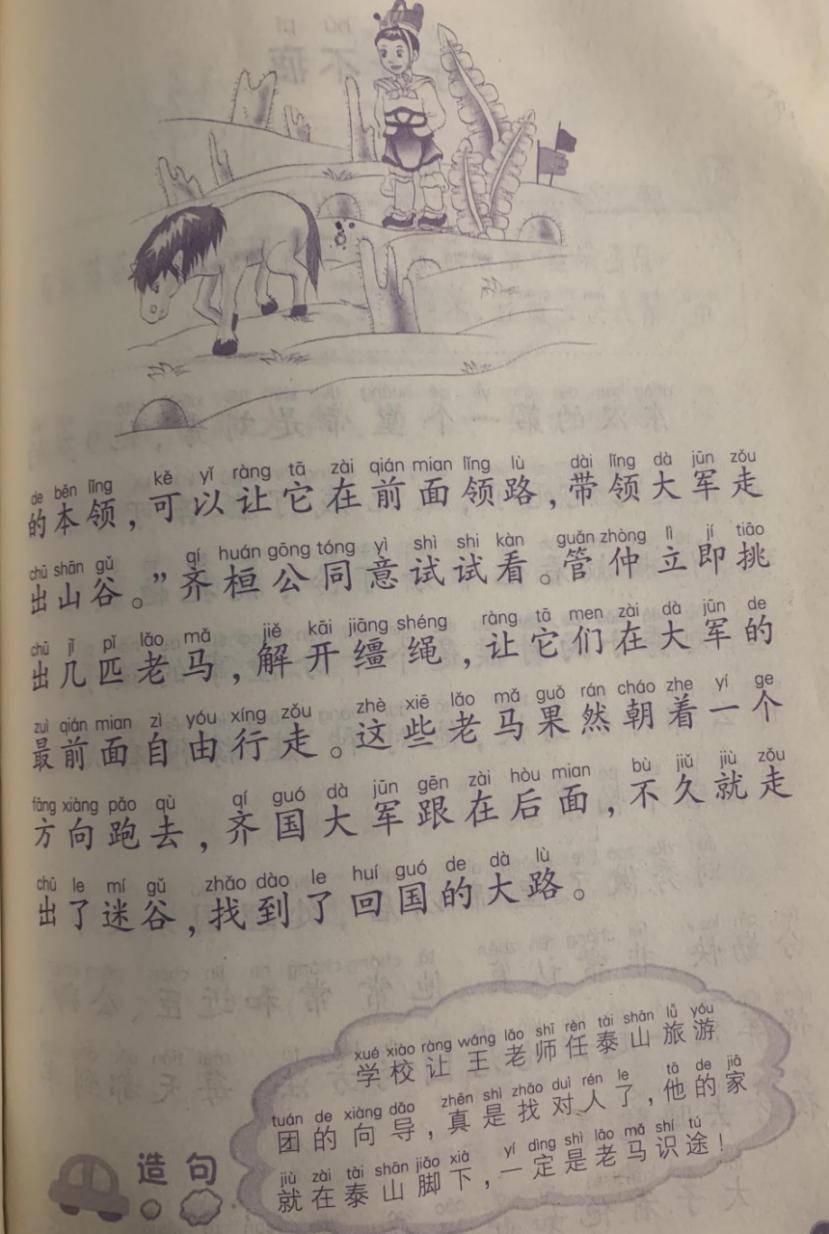 de běn lǐng kě yǐ ràng tā zài qián mian lǐng lù dài lǐng dà jūn zǒu
的本领，可以让它在前面领路，带领大军走
chū shān gǔ qí huán gōng tóng yì shì shi kàn guǎn zhòng lì jí tiāo
出山谷。”齐桓公同意试试看。管仲立即挑
chū jǐ pǐ lǎo mǎ jiě kāi jiāng shéng ràng tā men zài dà jūn de
出几匹老马，解开缰绳，让它们在大军的
zuì qián mian zì yóu xíng zǒu zhè xiē lǎo mǎ guǒ rán cháo zhe yí ge
最前面自由行走。这些老马果然朝着一个
fāng xiàng pǎo qù qí guó dà jūn gēn zài hòu mian bù jiǔ jiù zǒu
方向跑去，齐国大军跟在后面，不久就走
chū le mí gǔ zhǎo dào le huí guó de dà lù
出了迷谷，找到了回国的大路。
xué xiào ràng wáng lǎo shī rèn tài shān lǚ yóu
学校让王老师任泰山旅游
tuán de xiàng dǎo zhēn shì zhǎo duì rén le tā de jiā
团的向导，真是找对人了，他的家
jiù zài tài shān jiǎo xià yí dìng shì lǎo mǎ shí tú
就在泰山脚下，一定是老马识途！
造句